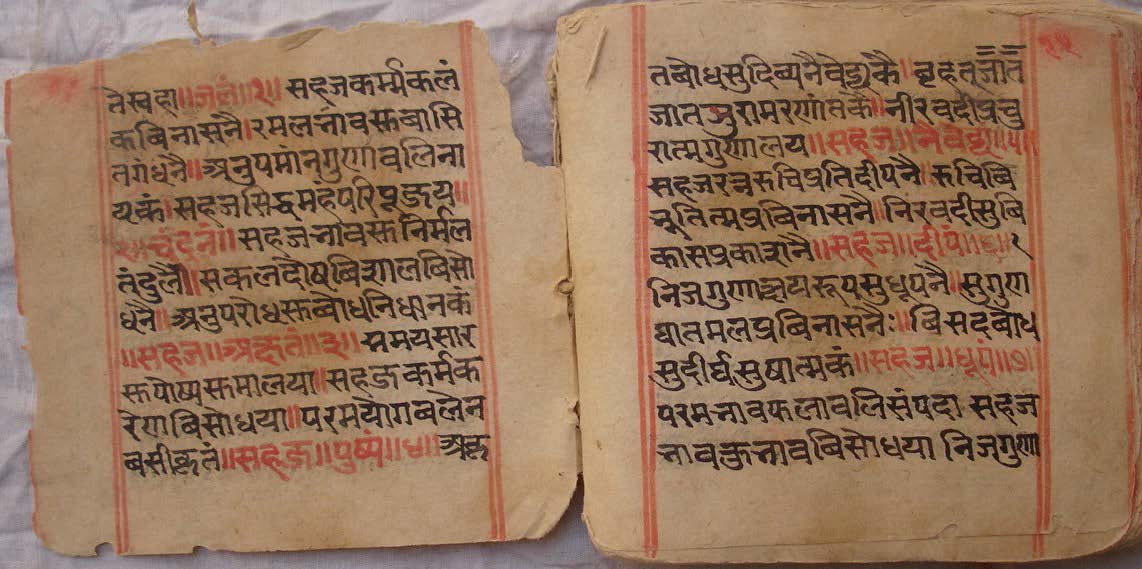 तेस्वहा॥जलं॥१॥सहजकर्म्मकलं
कबिनासनै।रमलनावस्तबासि
तगंधनै॥अनुपमांनगुणावलिना
यकं।सहजसिद्धमहंपरिपुजय॥
२॥चंदनं॥सहजनावस्तनिर्मल
तंदुलै॥सकलदोषबिशालबिसो
धनै॥अनुपरोधस्तबोधनिधानकं
॥सहज॥अक्षतं॥३॥समयसार
स्तपोष्पस्तमालया।सहजकर्मक
रेणबिसोधया॥परमयोगबलेन
बसीकृतं॥सहज॥पुष्पं॥४॥अकृ
२५
तबोधसुदिब्यनैवेद्यकै।बृहतजात
जातजुरामरणांतकै॥नीरवदीप्रचु
रात्मगुणालय॥सहज॥नैवेद्यं॥५॥
सहजरत्नरुचिप्रतिदीपनै।रुचिबि
नूतित्मप्रबिनासनै॥निरवदीसुबि
कासप्रकाशनै॥सहज॥दीपं॥६॥
निजगुणाक्षयरूपसुधूपनै॥सुगुण
घातमलप्रबिनासनैः॥बिसदबोध
सुदीर्घसुषात्मकं॥सहज॥धूपं॥७॥
परमनावफलावलिसंपदा सहज
नावकुनावबिसोधया निजगुण